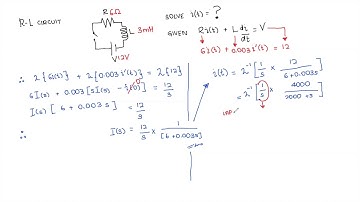 R-L CIRCUIT
R 6Ω
L 3mH
V 12V
SOLVE i(t) = ?
GIVEN Ri(t) + L di/dt = V
6i(t) + 0.003 i'(t) = 12
∴ 2{6i(t)} + 2{0.003 i'(t)} = 2{12}
6I(s) + 0.003[sI(s) - i(0)] = 12/s
I(s) [6 + 0.003s] = 12/s
∴ I(s) = 12/s × 1/[6+0.003s]
i(t) = 2⁻¹ [12/s × 1/6+0.003s]
= 2⁻¹ [1/s × 4000/2000+s]